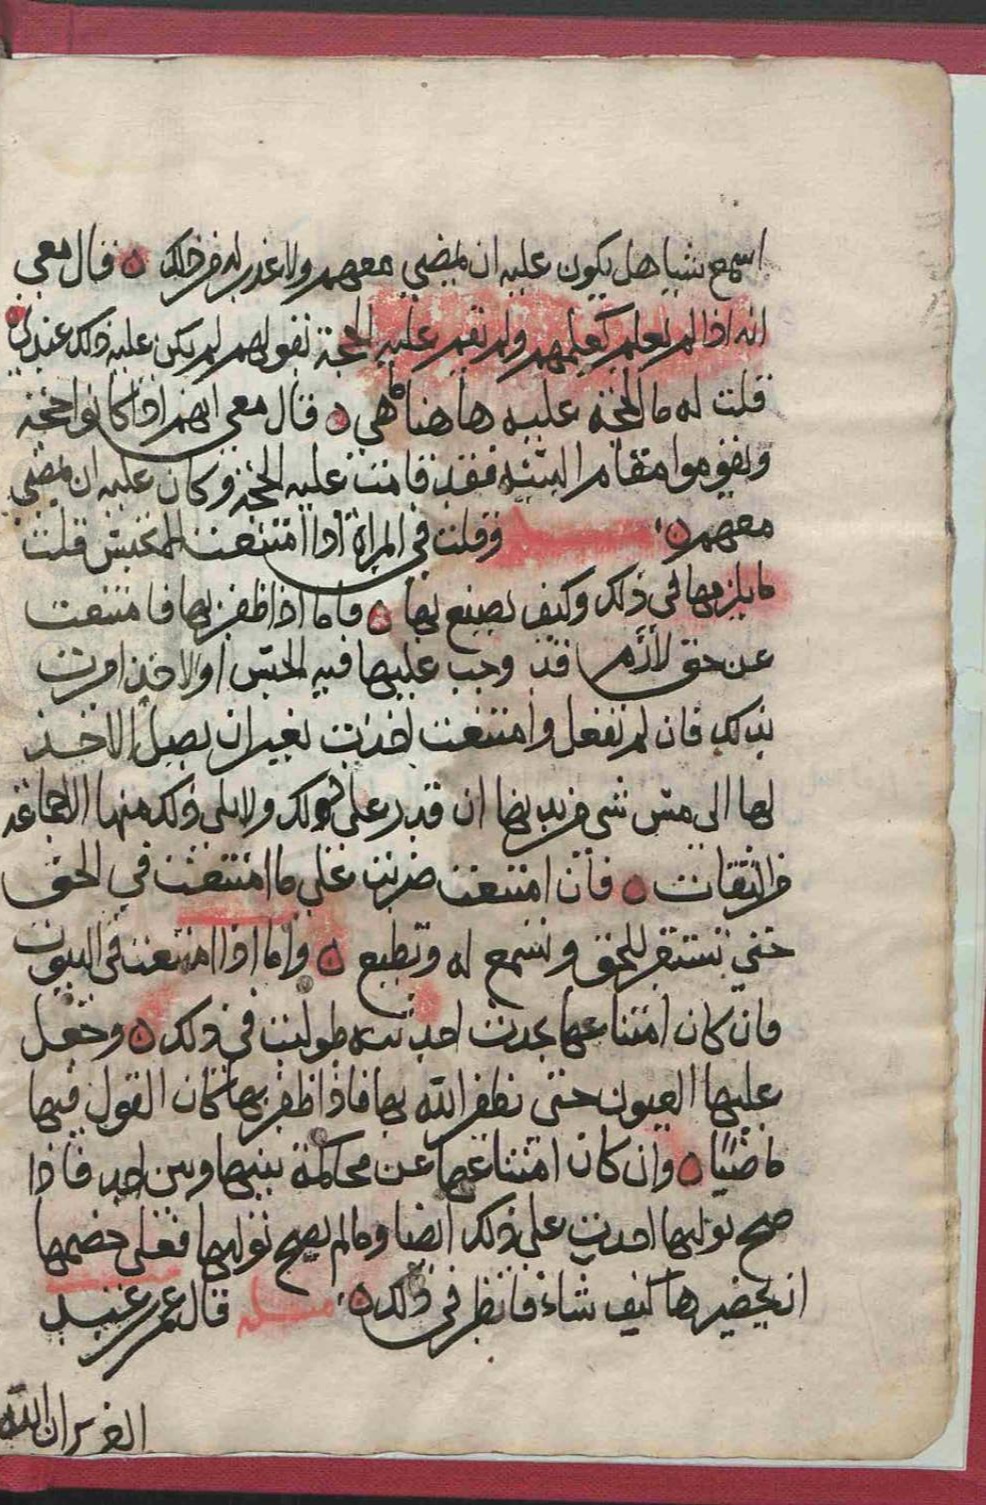 اسمع شيا هل يكون عليه ان يمضي معهم ولا عذر له من ذلك ه فقال معي
انه اذا لم يعلم كعلمهم ولم تقم عليه الحجة بقولهم لم يكن عليه ذلك عندي ه
قلت له ما الحجة عليه ها هنا ما هي ه قال معي انهم اذا كانوا حجة
ويقوموا مقام البينة فقد قامت عليه الحجة وكان عليه ان يمضي
معهم ه مسئلة وقلت في المراة اذا امتنعت المحبس قلت
ما يلزمها في ذلك وكيف يصنع بها ه فاما اذا ظفر بها فامتنعت
عن حق لازم قد وجب عليها فيه الحبس او الاخذ امرت
بذلك فان لم تفعل وامتنعت اخذت بغير ان يصل الاخذ
لها الى مس شي من بدنها ان قدر على ذلك ولا يلي ذلك منها الا جماعة
من الثقات ه فان امتنعت ضربت على ما امتنعت في الحق
حتى تستقر للحق وتسمع له وتطيع ه واما اذا امتنعت في البيوت
فان كان امتناعها بحدث احدثته طولبت في ذلك ه وجعل
عليها العيون حتى يظفر الله بها فاذا ظفر بها كان القول فيها
ما مضى ه وان كان امتناعها عن محاكمة بينها وبين احد فاذا
صح توليها اخذت على ذلك ايضا وما لم يصح توليها فعلى خصمها
ان يحضرها كيف شاء فانظر في ذلك ه مسئلة قال عمر
ان الله